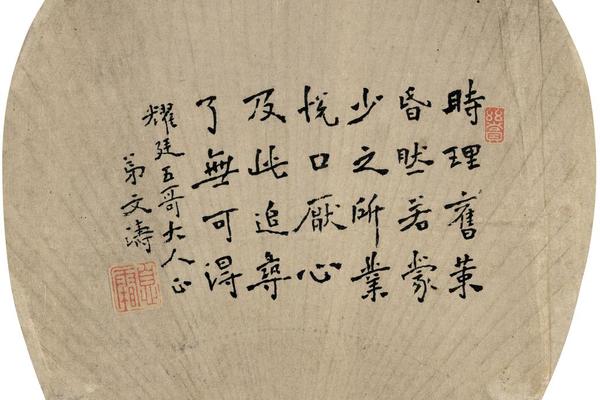 時理舊業
昏然若蒙
少之所業
悅口厭心
及此追尋
了無可得
耀廷五哥大人正
弟文濤
息霜